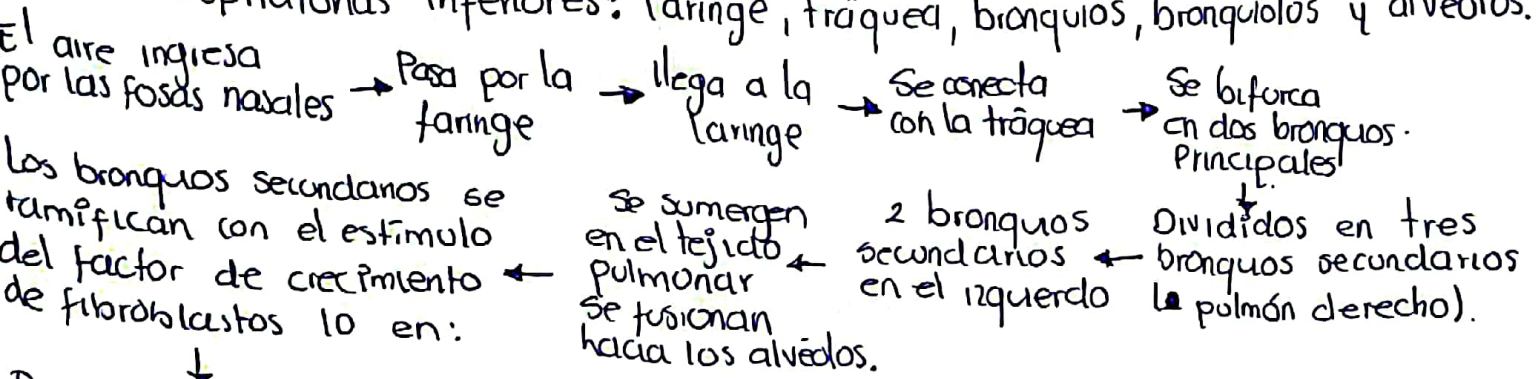 inferiores: laringe, tráquea, bronquios, bronquiolos y alveolos.
El aire ingresa
por las fosas nasales →
Pasa por la
faringe →
llega a la
laringe →
Se conecta
con la tráquea →
Se bifurca
en dos bronquos.
Principales
↓
Divididos en tres
bronquos secundarios
(a pulmón derecho).
←
2 bronquos
secundarios
en el izquerdo
←
Se sumergen
en el tejido
pulmonar
se fusionan
hacia los alvéolos.
←
Los bronquos secundarios se
ramifican con el estímulo
del factor de crecimiento
de fibroblastos 10 en:
↓